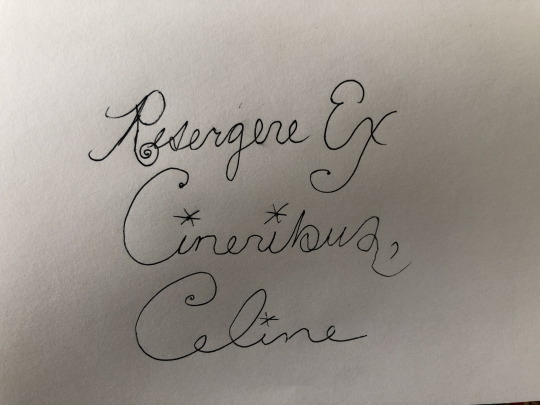 Resergere Ex
Cineribus,
Celine